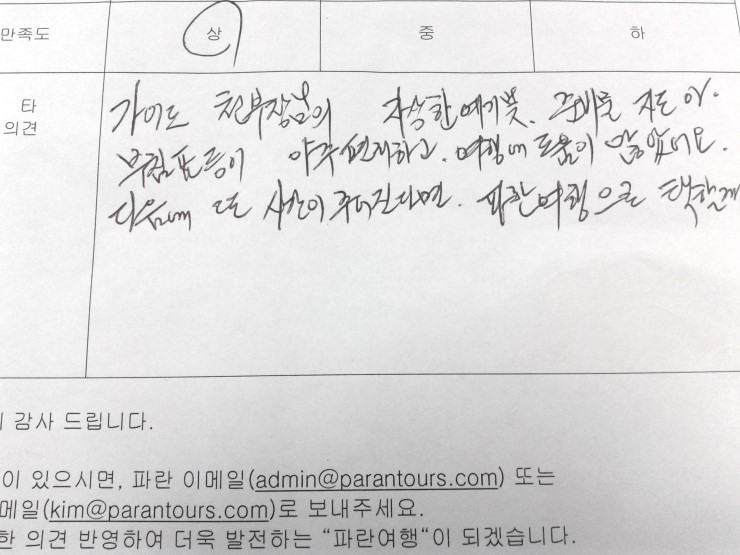 만족도 상 중 하
타
의견
가이드 천부장님의 자상한 여기봇. 준비물 지도 야.
부럼표등이 아주편리하고. 여행에 도움이 많았어요.
다음에 또 시간이 주어진다면. 파란여행으로 택할게
감사 드립니다.
이 있으시면, 파란 이메일(admin@parantours.com) 또는
메일(kim@parantours.com)로 보내주세요.
한 의견 반영하여 더욱 발전하는 "파란여행"이 되겠습니다.